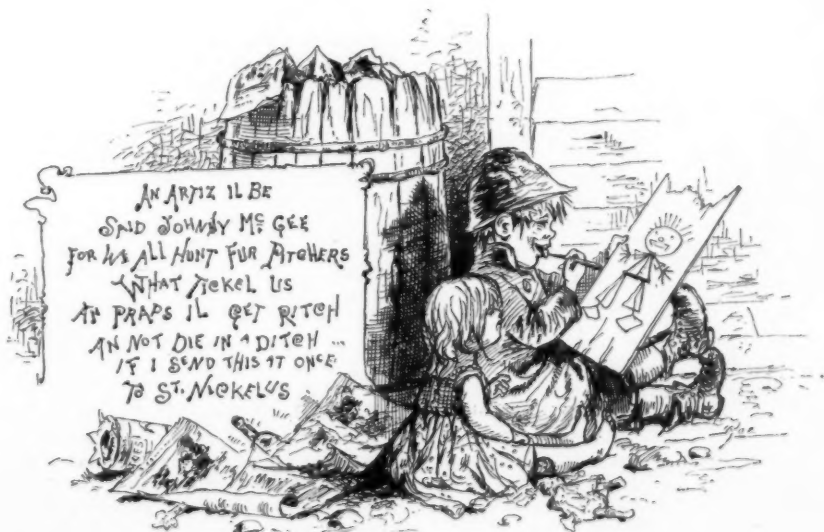 AN ARTIZ IL BE
SAID JOHNNY MC GEE
FOR WE ALL HUNT FUR PITCHERS
WHAT TICKEL US
AN PRAPS IL GET RITCH
AN NOT DIE IN A DITCH ...
IF I SEND THIS AT ONCE
TO ST. NICKELUS